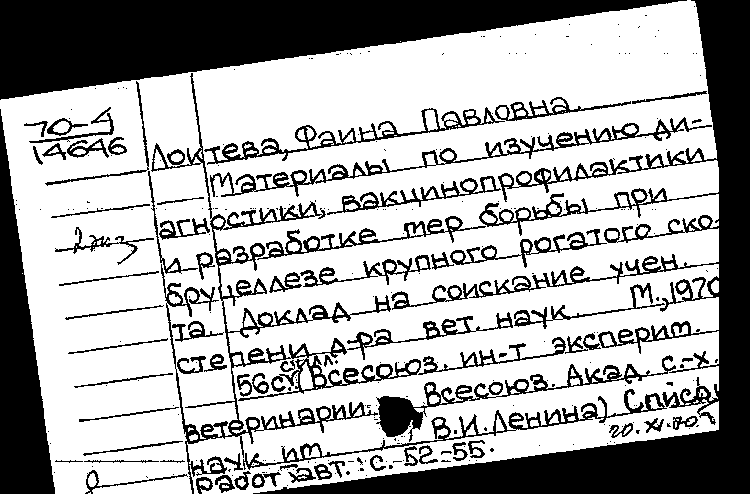 70-4
14646
Локтева, Фаина Павловна.
Материалы по изучению ди-
агностики, вакцинопрофилактики
и разработке мер борьбы при
бруцеллезе крупного рогатого ско-
та. Доклад на соискание учен.
степени д-ра вет. наук. М., 1970
56с. с илл. (Всесоюз. ин-т эксперим.
ветеринарии. Всесоюз. Акад. с.-х.
наук им. В.И. Ленина) Список
работ авт.: с. 52-55.
2 экз
20.XI.70